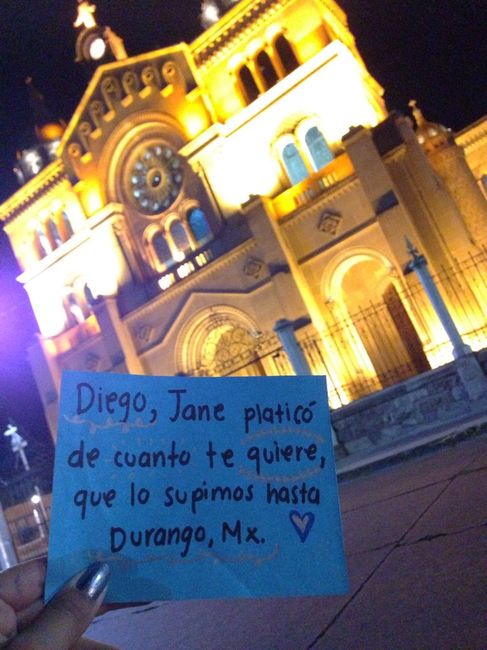 Diego, Jane platicó
de cuanto te quiere,
que lo supimos hasta
Durango, Mx.